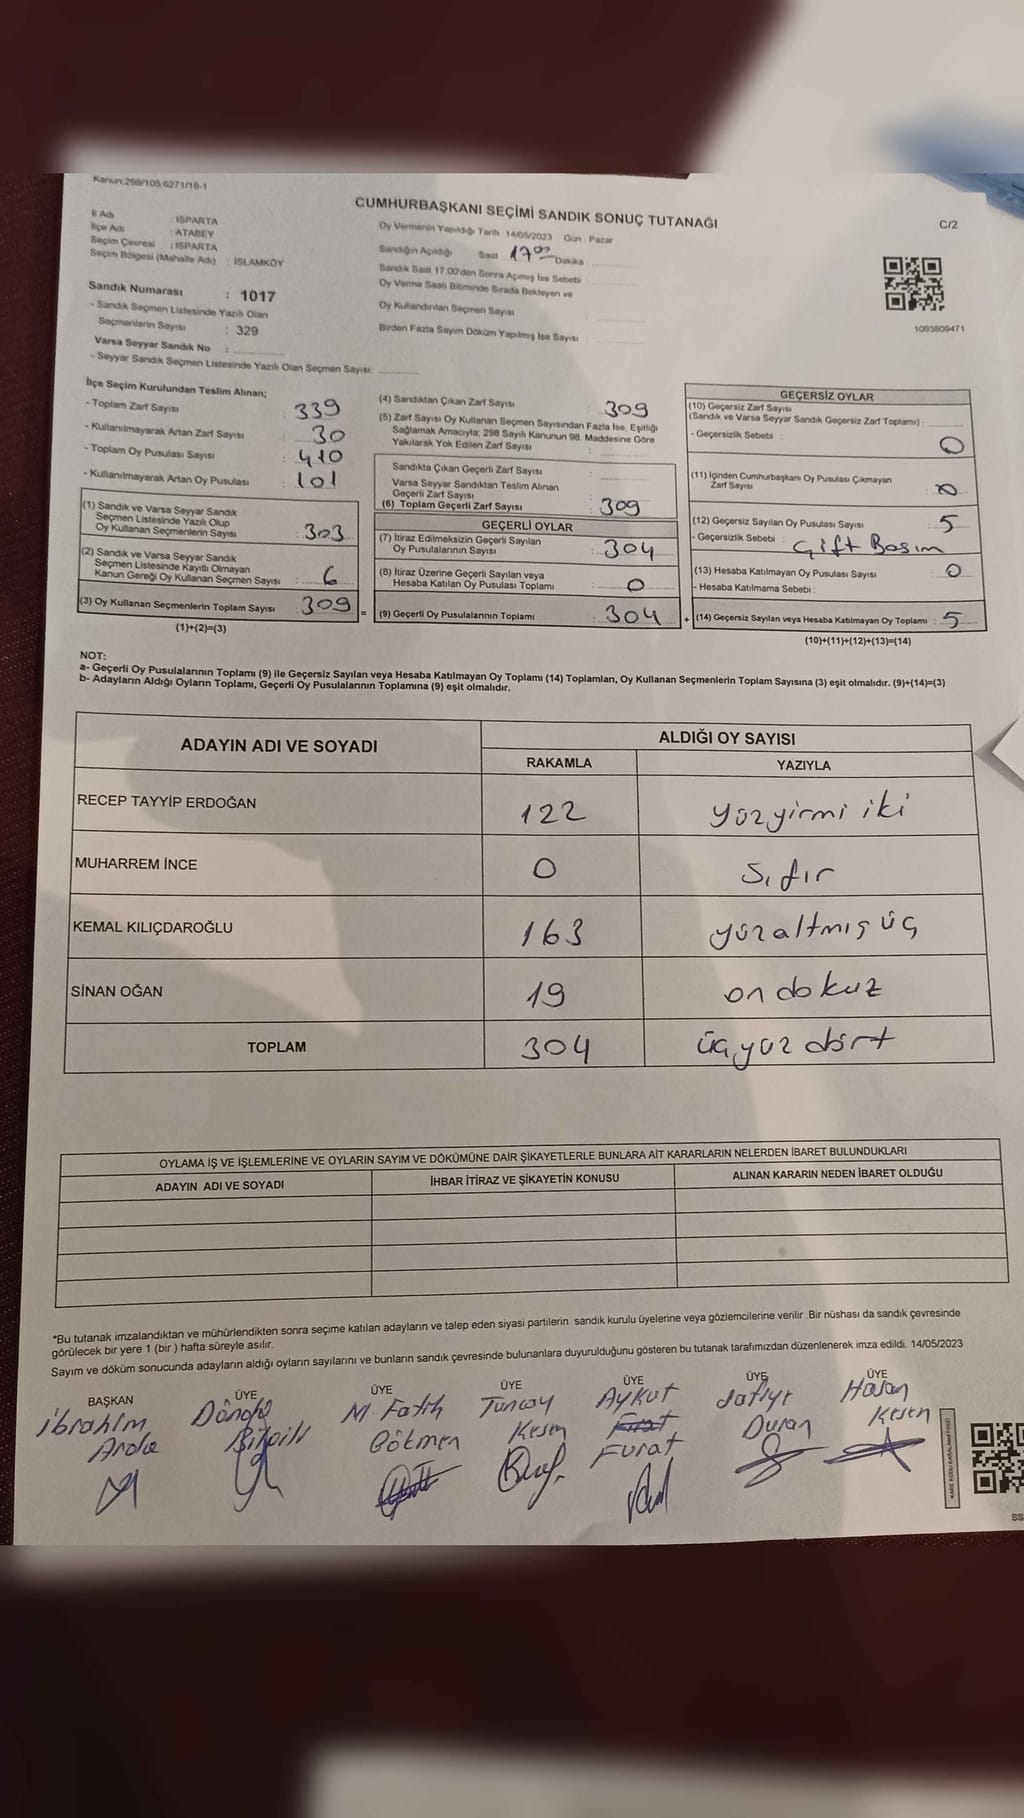 Kanun;298/105;6271/18-1
CUMHURBAŞKANI SEÇİMİ SANDIK SONUÇ TUTANAĞI
C/2
İl Adı : ISPARTA
İlçe Adı : ATABEY
Seçim Çevresi : ISPARTA
Seçim Bölgesi (Mahalle Adı) : İSLAMKÖY
Oy Vermenin Yapıldığı Tarih :14/05/2023 Gün : Pazar
Sandığın Açıldığı Saat 17⁰⁰ Dakika
Sandık Saat 17:00'den Sonra Açımış İse Sebebi
Oy Verme Saati Bitiminde Sırada Bekleyen ve
Oy Kullandırılan Seçmen Sayısı :
Birden Fazla Sayım Döküm Yapılmış İse Sayısı
1093809471
Sandık Numarası : 1017
- Sandık Seçmen Listesinde Yazılı Olan
Seçmenlerin Sayısı : 329
Varsa Seyyar Sandık No :
- Seyyar Sandık Seçmen Listesinde Yazılı Olan Seçmen Sayısı:
İlçe Seçim Kurulundan Teslim Alınan;
- Toplam Zarf Sayısı : 339
- Kullanılmayarak Artan Zarf Sayısı : 30
- Toplam Oy Pusulası Sayısı : 410
- Kullanılmayarak Artan Oy Pusulası : 101
(1) Sandık ve Varsa Seyyar Sandık
Seçmen Listesinde Yazılı Olup
Oy Kullanan Seçmenlerin Sayısı : 303
(2) Sandık ve Varsa Seyyar Sandık
Seçmen Listesinde Kayıtlı Olmayan
Kanun Gereği Oy Kullanan Seçmen Sayısı : 6
(3) Oy Kullanan Seçmenlerin Toplam Sayısı : 309 =
(1)+(2)=(3)
(4) Sandıktan Çıkan Zarf Sayısı : 309
(5) Zarf Sayısı Oy Kullanan Seçmen Sayısından Fazla İse, Eşitliği
Sağlamak Amacıyla; 298 Sayılı Kanunun 98. Maddesine Göre
Yakılarak Yok Edilen Zarf Sayısı :
Sandıkta Çıkan Geçerli Zarf Sayısı :
Varsa Seyyar Sandıktan Teslim Alınan
Geçerli Zarf Sayısı :
(6) Toplam Geçerli Zarf Sayısı : 309
GEÇERLİ OYLAR
(7) İtiraz Edilmeksizin Geçerli Sayılan
Oy Pusulalarının Sayısı : 304
(8) İtiraz Üzerine Geçerli Sayılan veya
Hesaba Katılan Oy Pusulası Toplamı : 0
(9) Geçerli Oy Pusulalarının Toplamı : 304 +
GEÇERSİZ OYLAR
(10) Geçersiz Zarf Sayısı
(Sandık ve Varsa Seyyar Sandık Geçersiz Zarf Toplamı) :
- Geçersizlik Sebebi : 0
(11) İçinden Cumhurbaşkanı Oy Pusulası Çıkmayan
Zarf Sayısı : 0
(12) Geçersiz Sayılan Oy Pusulası Sayısı : 5
- Geçersizlik Sebebi : Çift Basım
(13) Hesaba Katılmayan Oy Pusulası Sayısı : 0
- Hesaba Katılmama Sebebi :
(14) Geçersiz Sayılan veya Hesaba Katılmayan Oy Toplamı : 5
(10)+(11)+(12)+(13)=(14)
NOT:
a- Geçerli Oy Pusulalarının Toplamı (9) ile Geçersiz Sayılan veya Hesaba Katılmayan Oy Toplamı (14) Toplamları, Oy Kullanan Seçmenlerin Toplam Sayısına (3) eşit olmalıdır. (9)+(14)=(3)
b- Adayların Aldığı Oyların Toplamı, Geçerli Oy Pusulalarının Toplamına (9) eşit olmalıdır.
ADAYIN ADI VE SOYADI
ALDIĞI OY SAYISI
RAKAMLA YAZIYLA
RECEP TAYYİP ERDOĞAN 122 yüzyirmi iki
MUHARREM İNCE 0 Sıfır
KEMAL KILIÇDAROĞLU 163 yüzaltmış üç
SİNAN OĞAN 19 on dokuz
TOPLAM 304 üçyüz dört
OYLAMA İŞ VE İŞLEMLERİNE VE OYLARIN SAYIM VE DÖKÜMÜNE DAİR ŞİKAYETLERLE BUNLARA AİT KARARLARIN NELERDEN İBARET BULUNDUKLARI
ADAYIN ADI VE SOYADI İHBAR İTİRAZ VE ŞİKAYETİN KONUSU ALINAN KARARIN NEDEN İBARET OLDUĞU
*Bu tutanak imzalandıktan ve mühürlendikten sonra seçime katılan adayların ve talep eden siyasi partilerin sandık kurulu üyelerine veya gözlemcilerine verilir .Bir nüshası da sandık çevresinde
görülecek bir yere 1 (bir ) hafta süreyle asılır.
Sayım ve döküm sonucunda adayların aldığı oyların sayılarını ve bunların sandık çevresinde bulunanlara duyurulduğunu gösteren bu tutanak tarafımızdan düzenlenerek imza edildi. 14/05/2023
BAŞKAN ÜYE ÜYE ÜYE ÜYE ÜYE ÜYE
İbrahim M. Fatih Tuncay Aykut Hasan
Gökmen Kesen Fırat Duran Kesen
Furat
SS